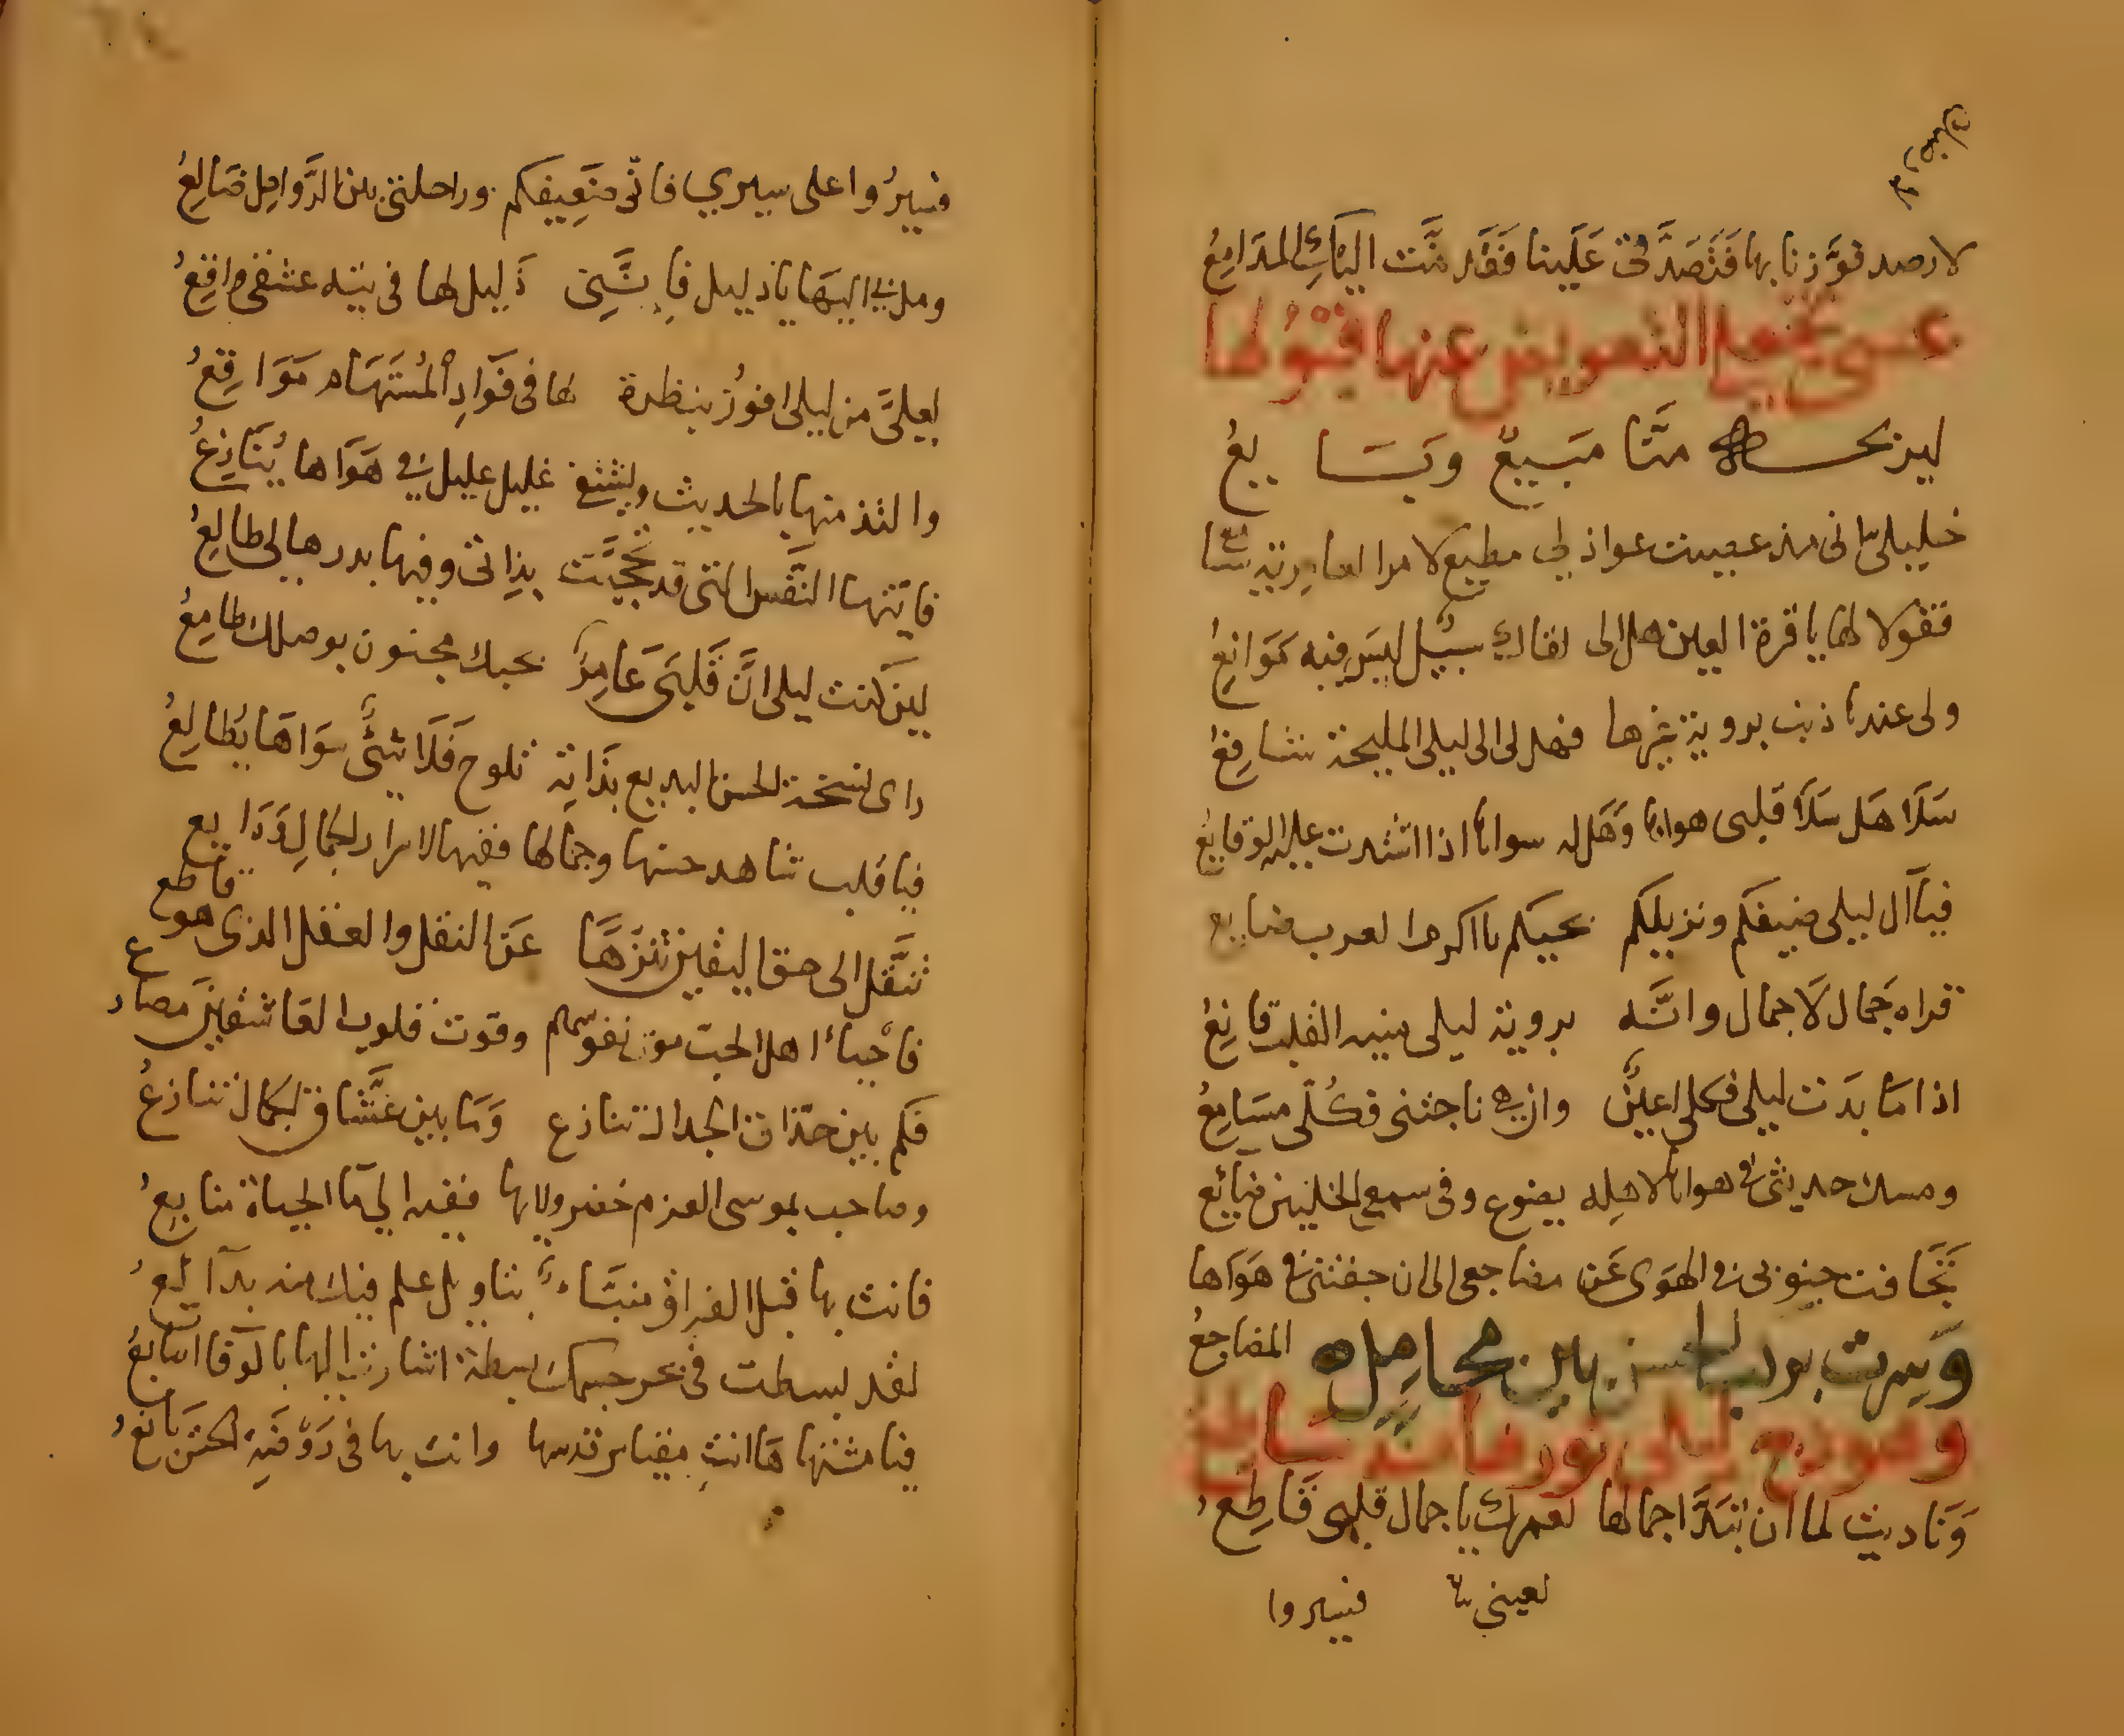 لارصد فوزنا بها فتصدقى علينا فقد نمت اليك المدامع
عسى تجعل التعويض عنها قبولها
ليربح منا مبيع وبايع
خليلى انى مذ عصيت عواذلى مطيع لامر العامرية سامع
فقولا لها ياقرة العين هل الى لقاك سبيل ليس فيه موانع
ولى عندها ذنب بروية غيرها فهل لى الى ليلى المليحة شافع
سلا هل سلا قلبى هواها وهل له سواها اذا اشتدت عليه الوقايع
فيا آل ليلى ضيفكم ونزيلكم بحيكم يا اكرم العرب ضايع
قراه جمال لا جمال وانه بروية ليلى منية القلب قانع
اذا ما بدت ليلى فكلى اعين وان هى ناجتنى فكلى مسامع
ومسك حديثى فى هواها لاهله يضوع وفى سمع الخليين ضايع
تجافت جنوبى فى الهوى عن مضاجعى الى ان جفتنى فى هواها
المضاجع
وسرت بركب الحسن بين محامل
وهودج ليلى نورها منه ساطع
وناديت لما ان تبدا جمالها لعمرك يا جمال قلبى قاطع
فسيروا
فسيروا على سيرى فانى ضعيفكم وراحلتى بين الرواحل ضالع
ومل بى اليها يا دليل فاننى ذليل لها فى تيه عشقى واقع
لعلى من ليلى افوز بنظرة لها فى فواد المستهام مواقع
والتذ منها بالحديث ويشتفى غليل عليل فى هواها ينازع
فايتها النفس التى قد تحجبت بذاتى وفيها بدرها لى طالع
لين كنت ليلى ان قلبى عامر بحبك مجنون بوصلك طامع
راى نسخة الحسن البديع بذاته تلوح فلا شئ سواها يطالع
فيا قلب شاهد حسنها وجمالها ففيها لاسرار الجمال ودايع
تنقل الى حق اليقين تنزها عن النقل والعقل الذى هو قاطع
فاحياء اهل الحب موت نفوسهم وقوت قلوب العاشقين مصارع
فكم بين حذاق الجدال تنازع وما بين عشاق الجمال تنازع
وصاحب بموسى العزم خضر ولايها ففيه الى ما الحياة منابع
فانت بها قبل الفراق منباء بتاويل علم فيك منه بدائع
لقد بسطت فى بحر جسمك بسطة اشارت اليها بالوفا اصابع
فيا مشتهاها انت مقياس قدسها وانت بها فى روضة الحسن يانع